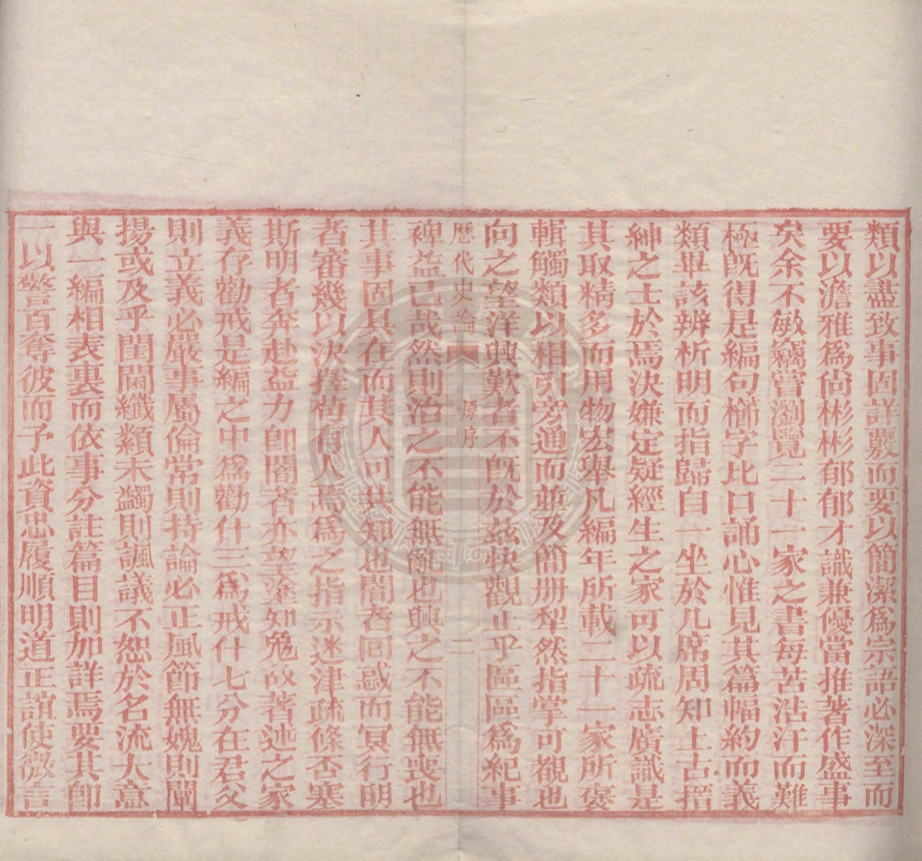 類以盡致事固詳覈而要以簡潔爲宗語必深至而
要以澹雅爲尙彬彬郁郁才識兼優當推著作盛事
矣余不敏竊嘗瀏覽二十一家之書每苦浩汗而難
極旣得是編句櫛字比口誦心惟見其篇幅約而義
類畢該辨析明而指歸自一坐於几席周知上古搢
紳之士於焉決嫌定疑經生之家可以疏志廣識是
其取精多而用物宏舉凡編年所載二十一家所褒
輯觸類以相引旁通而並及簡册犁然指掌可觀也
向之望洋興歎者不旣於兹快觀止乎區區爲紀事
歷代史論 原序 二
裨益已哉然則治之不能無亂也興之不能無喪也
其事固具在而其人可共知也闇者回惑而冥行明
者審幾以決擇苟得人焉爲之指示迷津疏條否塞
斯明者奔赴益力卽闇者亦望塗知免故著述之家
義存勸戒是編之中爲勸什三爲戒什七分在君父
則立義必嚴事屬倫常則持論必正風節無媿則闡
揚或及乎閨閫纖纇未蠲則諷議不恕於名流大意
與一編相表裏而依事分註篇目則加詳焉要其卽
一以警百奪彼而予此資忠履順明道正誼使微言